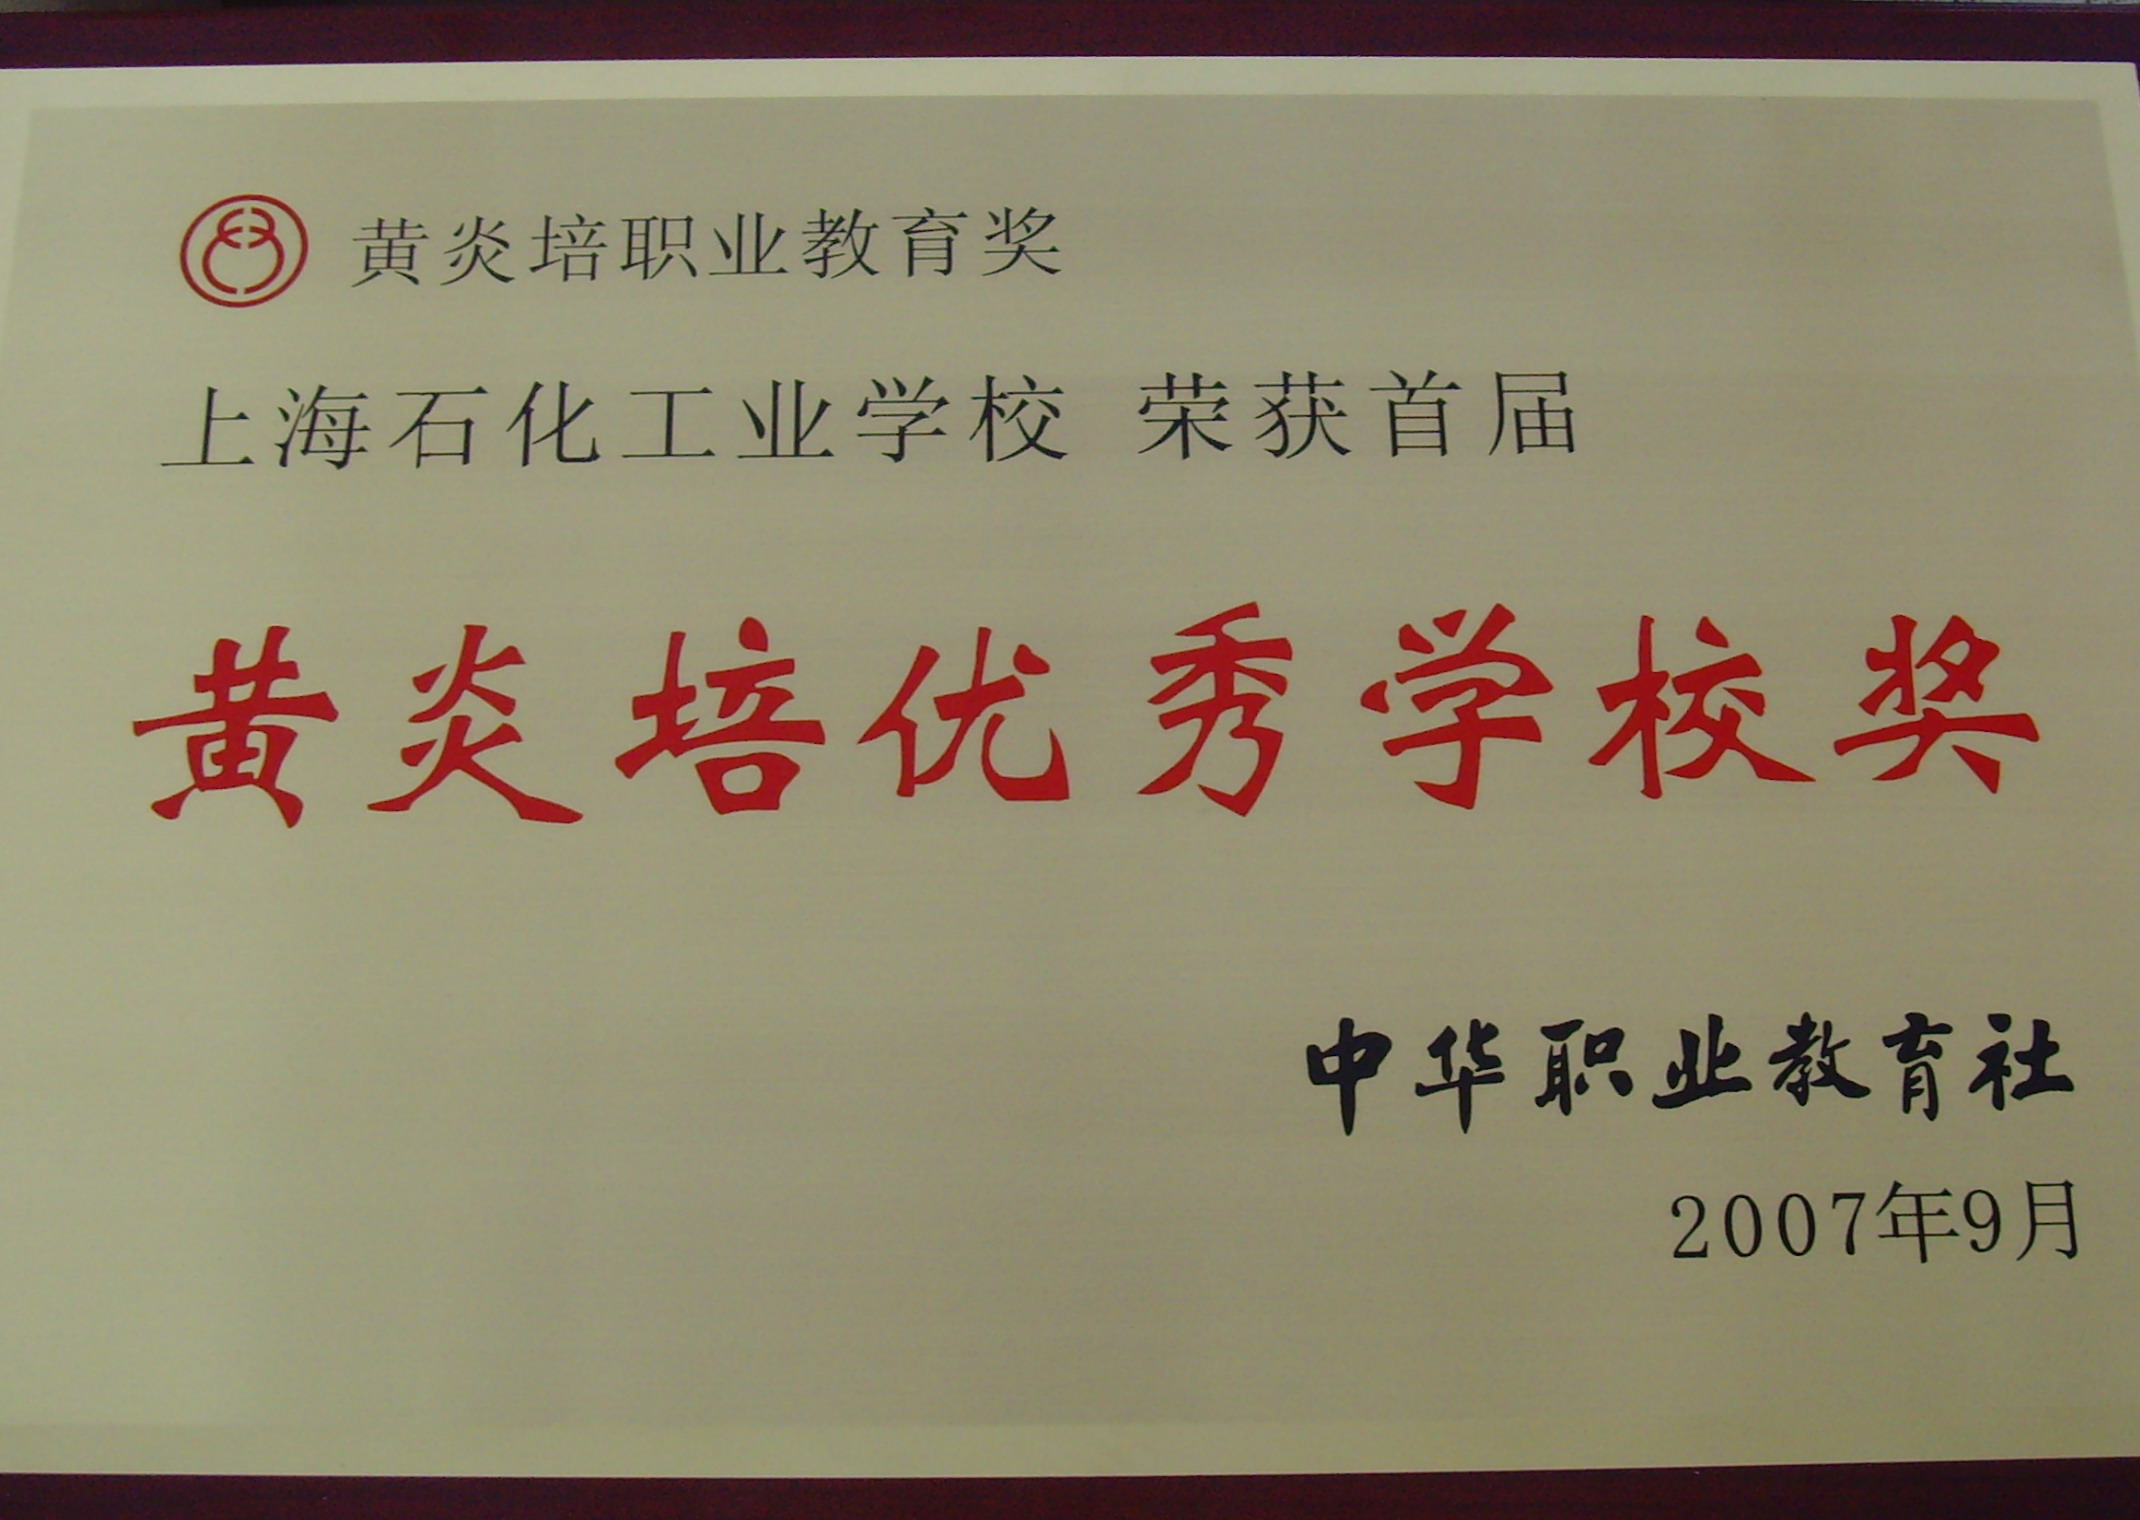 黄炎培职业教育奖
上海石化工业学校 荣获首届
黄炎培优秀学校奖
中华职业教育社
2007年9月